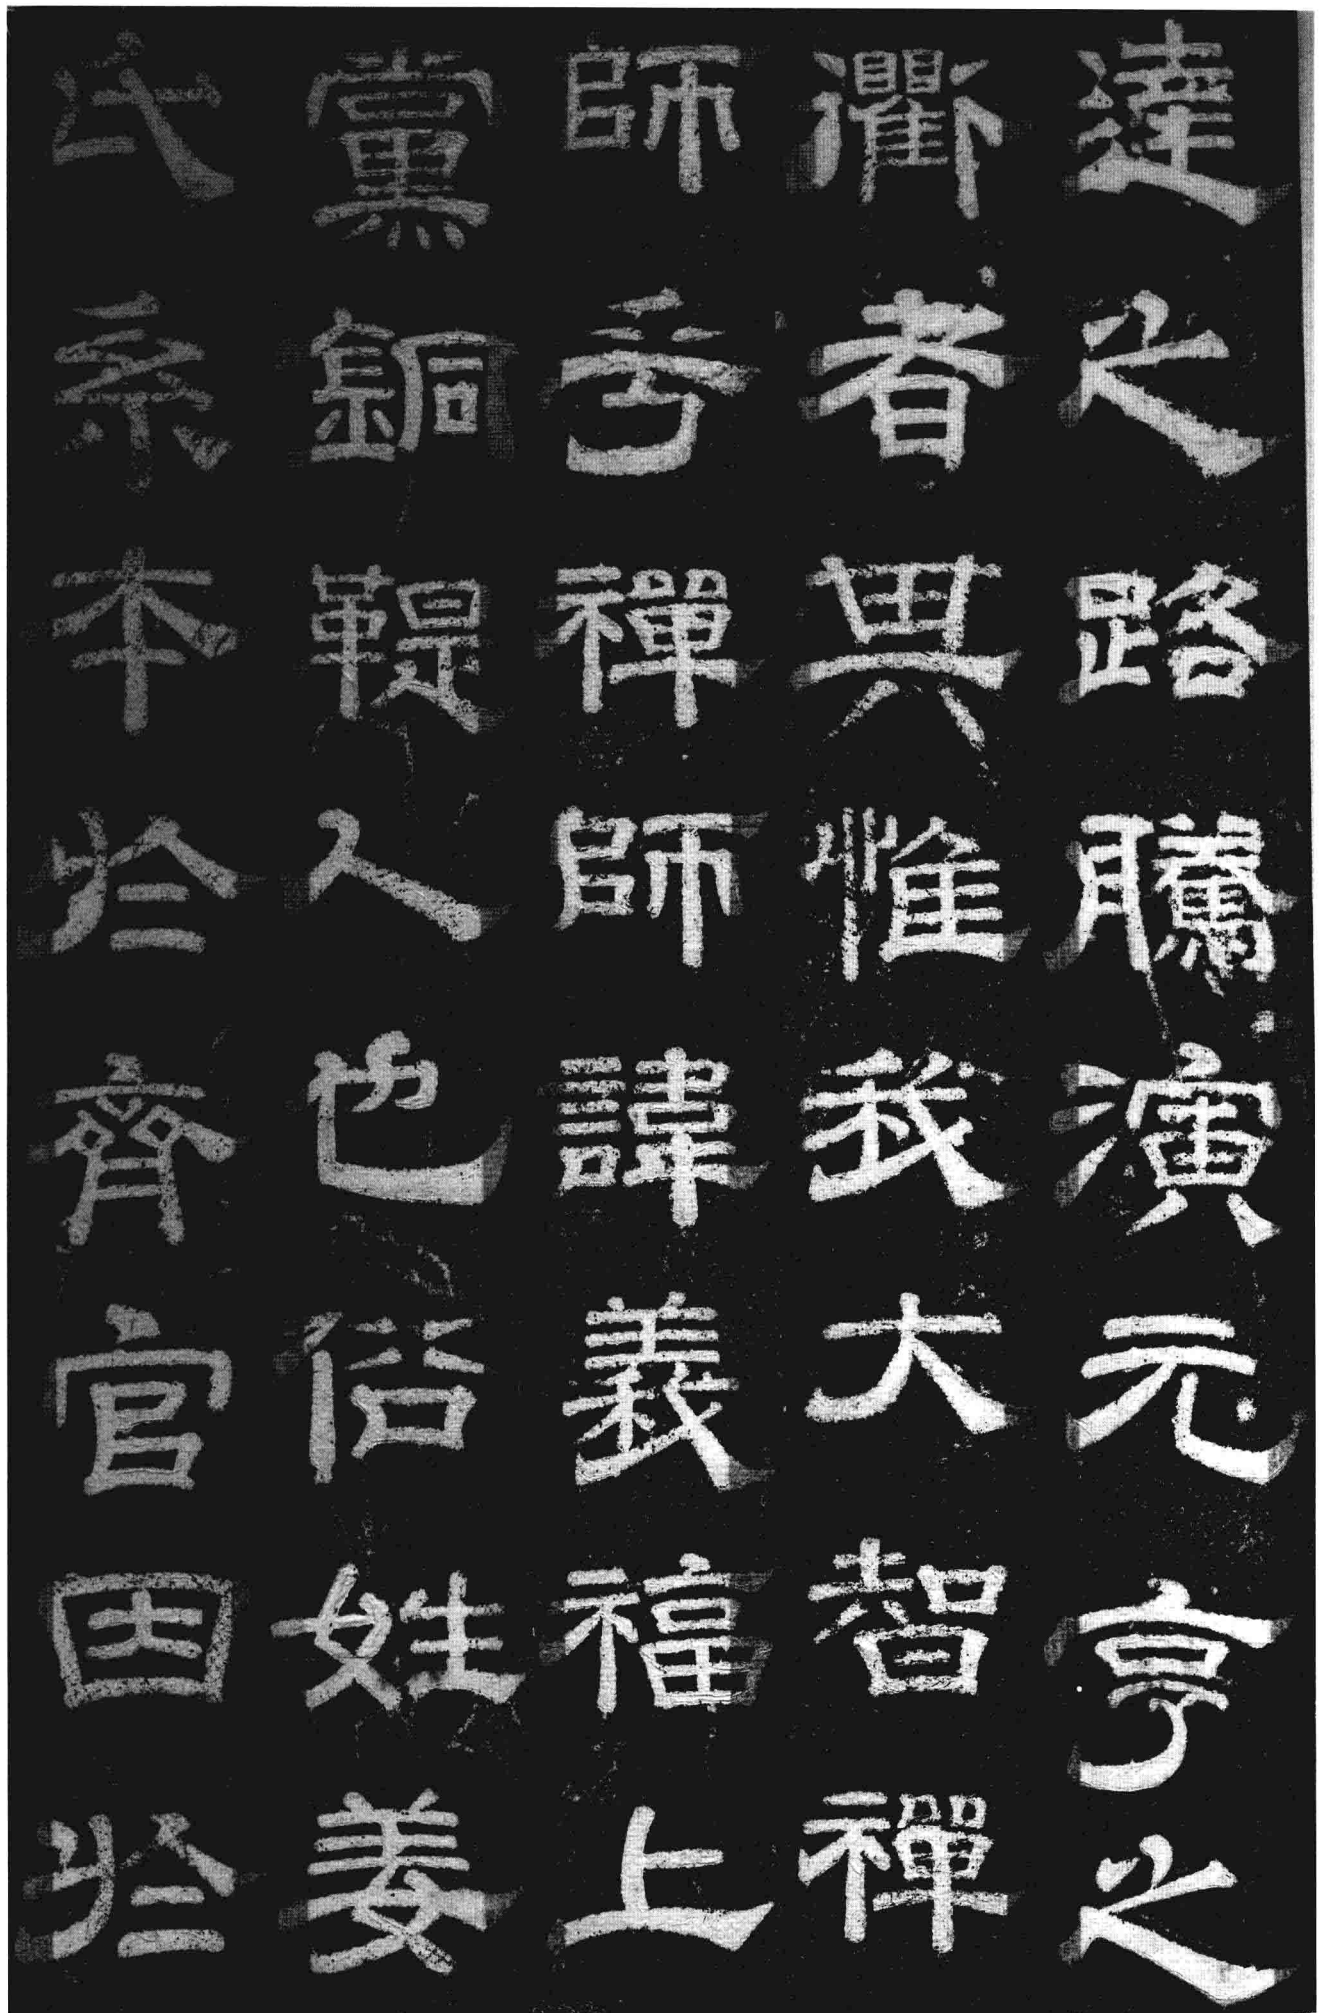 達之路騰演元亨之
衢者其惟我大智禪
師乎禪師諱義福上
黨銅鞮人也俗姓姜
氏系本於齊官因於